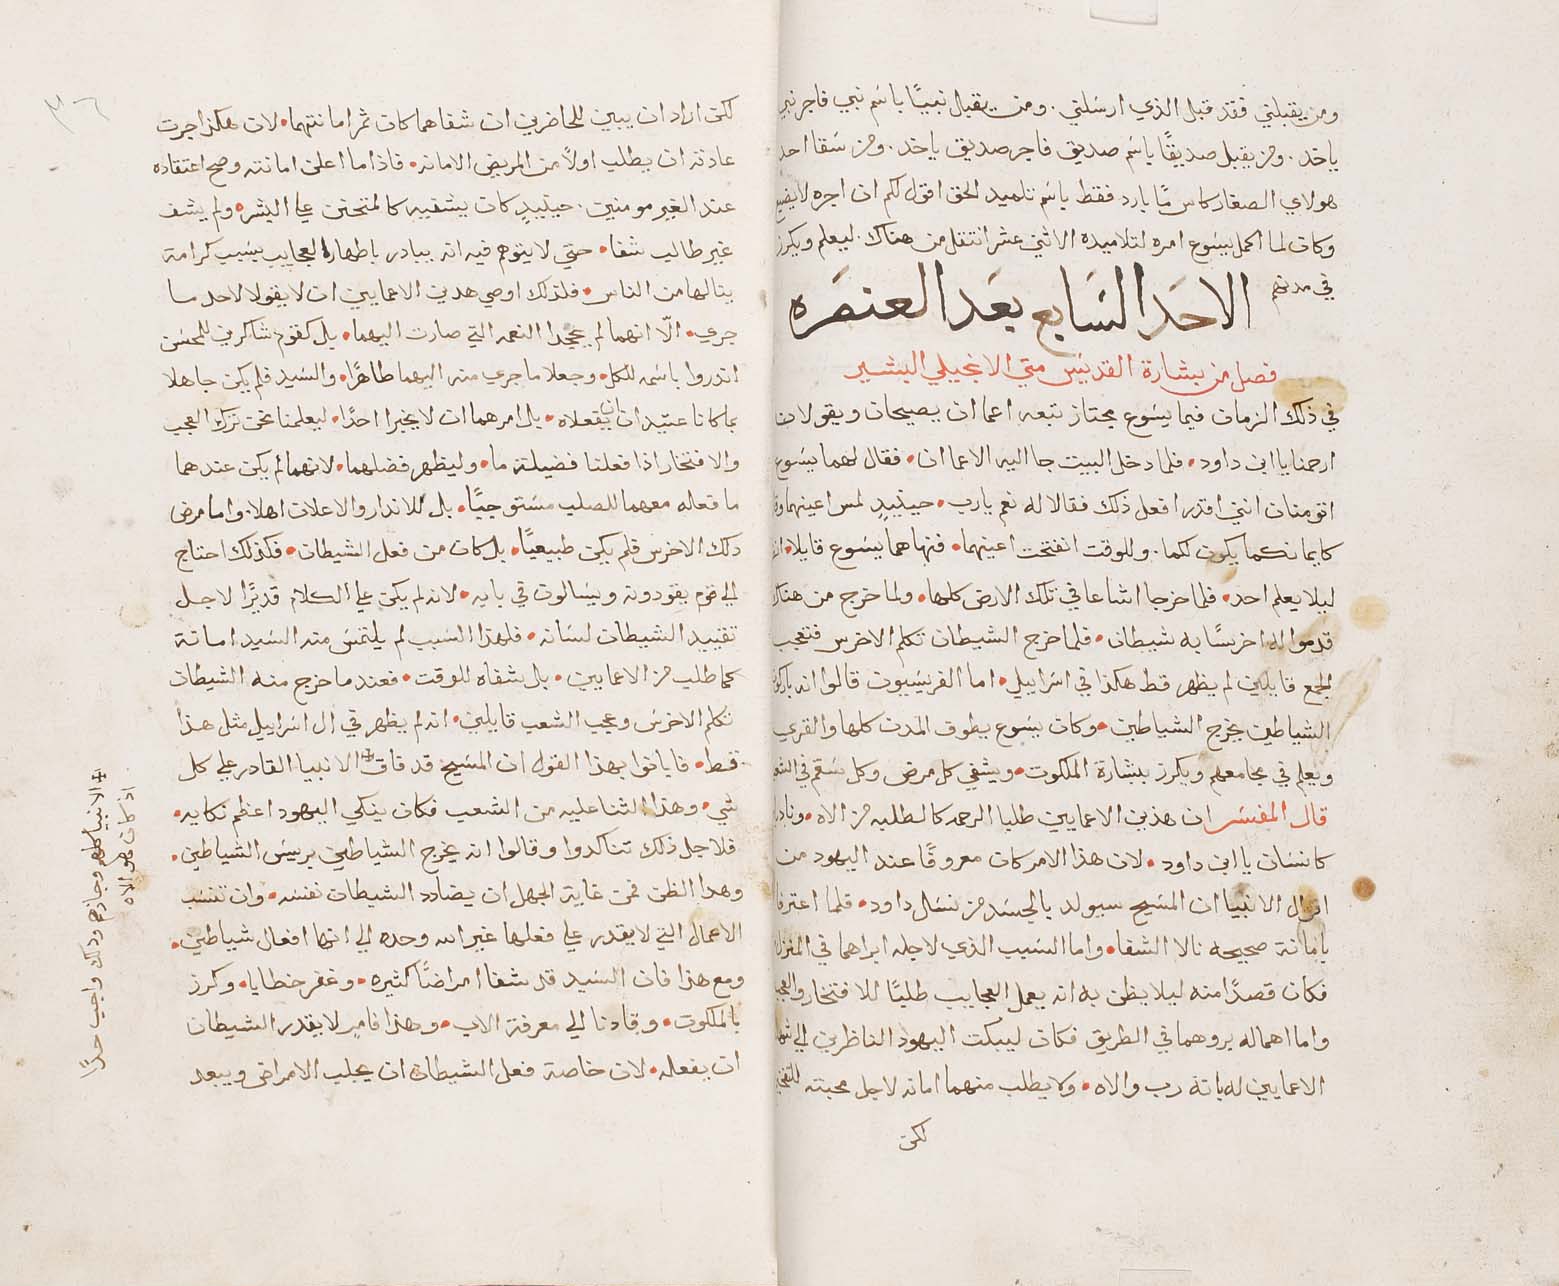 ومن يقبلني فقد قبل الذي ارسلني. ومن يقبل نبيًا باسم نبي فاجر نبي
ياخد. ومن يقبل صديقًا باسم صديق فاجر صديق ياخد. ومن سقا احد
هولاي الصغار كاس مًا بارد فقط باسم تلميد الحق اقول لكم ان اجره لا يضيع
وكان لما اكمل يسوع امره لتلاميده الاثني عشر انتقل من هناك. ليعلم ويكرز
في مدنهم
الاحد السابع بعد العنصره
فصل من بشارة القديس متي الانجيلي البشير
في ذلك الزمان فيما يسوع مجتاز تبعه اعما ان يصيحان ويقولان
ارحمنا يا ابن داود• فلما دخل البيت جا اليه الاعما ان• فقال لهما يسوع
اتومنان انني اقدر افعل ذلك فقالا له نعم يارب• حينيدٍ لمس اعينهما
كايمانكما يكون لكما. وللوقت انفتحت اعينهما• فنهاهما يسوع قايلا•
ليلا يعلم احد• فلما خرجا اشاعا في تلك الارض كلها• ولما خرج من هناك
قدموا له اخرسًا به شيطان• فلما خرج الشيطان تكلم الاخرس فتعجب
الجمع قايلين لم يظهر قط هكذا في اسراييل• اما الفريسيون قالوا انه باركون
الشياطين يخرج الشياطين• وكان يسوع يطوف المدن كلها والقري
ويعلم في مجامعهم ويكرز ببشارة الملكوت• ويشفي كل مرض وكل سقم في
قال المفسر ان هدين الاعمايين طلبا الرحمه كالطلبه من الاه•
كانسان يا ابن داود• لان هذا الامر كان معروفًا عند اليهود من
اقوال الانبيا ان المسيح سيولد بالجسد من نسل داود• فلما اعترفا
بامانة صحيحه نالا الشفا• واما السبب الذي لاجله ابراهما في المنزل
فكان قصدًا منه ليلا يظن به انه يعمل العجايب طلبًا للافتخار
واما اهماله بروهما في الطريق فكان ليبكت اليهود الناظرين الي
الاعمايين له بانه رب والاه• ولا يطلب منهما امانه لاجل محبته
لكن
لكن اراد ان يبين للحاضرين ان شفاهما كان ثمر امانتهما• لان هكذا جرت
عادته ان يطلب اولاً من المريض الامانه• فاذا ما اعلن امانته وصح اعتقاده
عند الغير مومنين. حينيدٍ كان يشفيه كالمتحنن علي البشر• ولم يشف
غير طالب شفا• حتي لا يتوهم فيه انه يبادر باظهار العجايب بسبب كرامة
ينالها من الناس• فلذلك اوصي هدين الاعمايين ان لا يقولا لاحد ما
جري• الّا انهما لم يجحدا النعمه التي صارت اليهما• بل كقوم شاكرين للمحسن
اندروا باسمه للكل• وجعلا ما جري منه اليهما ظاهرًا• والسيد فلم يكن جاهلا
بما كانا عتيدان ان يفعلاه• بل امرهما ان لا يخبرا احدًا• ليعلمنا نحن ترك العجب
والافتخار اذا فعلنا فضيلة ما• وليظهر فضلهما• لانهما لم يكن عندهما
ما فعله معهما للصلب مستوجبًا• بل للاندار والاعلان اهلا. واما مرض
دلك الاخرس فلم يكن طبيعيًا• بل كان من فعل الشيطان• فكدلك احتاج
الي قوم يقودونه ويسالون في بابه• لانه لم يكن علي الكلام قديرًا لاجل
تقييد الشيطان لسانه• فلهذا السبب لم يلتمس منه السيد امانة
كما طلب من الاعمايين• بل شفاه للوقت• فعند ما خرج منه الشيطان
تكلم الاخرس وعجب الشعب قايلين• انه لم يظهر في ال اسراييل مثل هذا
قط• فابانوا بهذا القول ان المسيح قد فاق الانبيا القادر علي كل
شي• وهذا الثنا عليه من الشعب فكان ينكي اليهود اعظم نكايه•
فلاجل ذلك تناكدوا وقالوا انه يخرج الشياطين برييس الشياطين•
وهدا الظن فمن غاية الجهل ان يضادد الشيطان نفسه• وان تنسب
الاعمال التي لا يقدر علي فعلها غير الله وحده الي انها افعال شياطين•
ومع هذا فان السيد قد شفا امراضًا كثيره• وغفر خطايا• وكرز
بالملكوت• وقادنا الي معرفة الاب• وهذا فامر لا يقدر الشيطان
ان يفعله• لان خاصة فعل الشيطان ان يجلب الامراض ويبعد
الانبيا كلهم وجازهم ودلك واجب جدًا
اد كان هو الاه